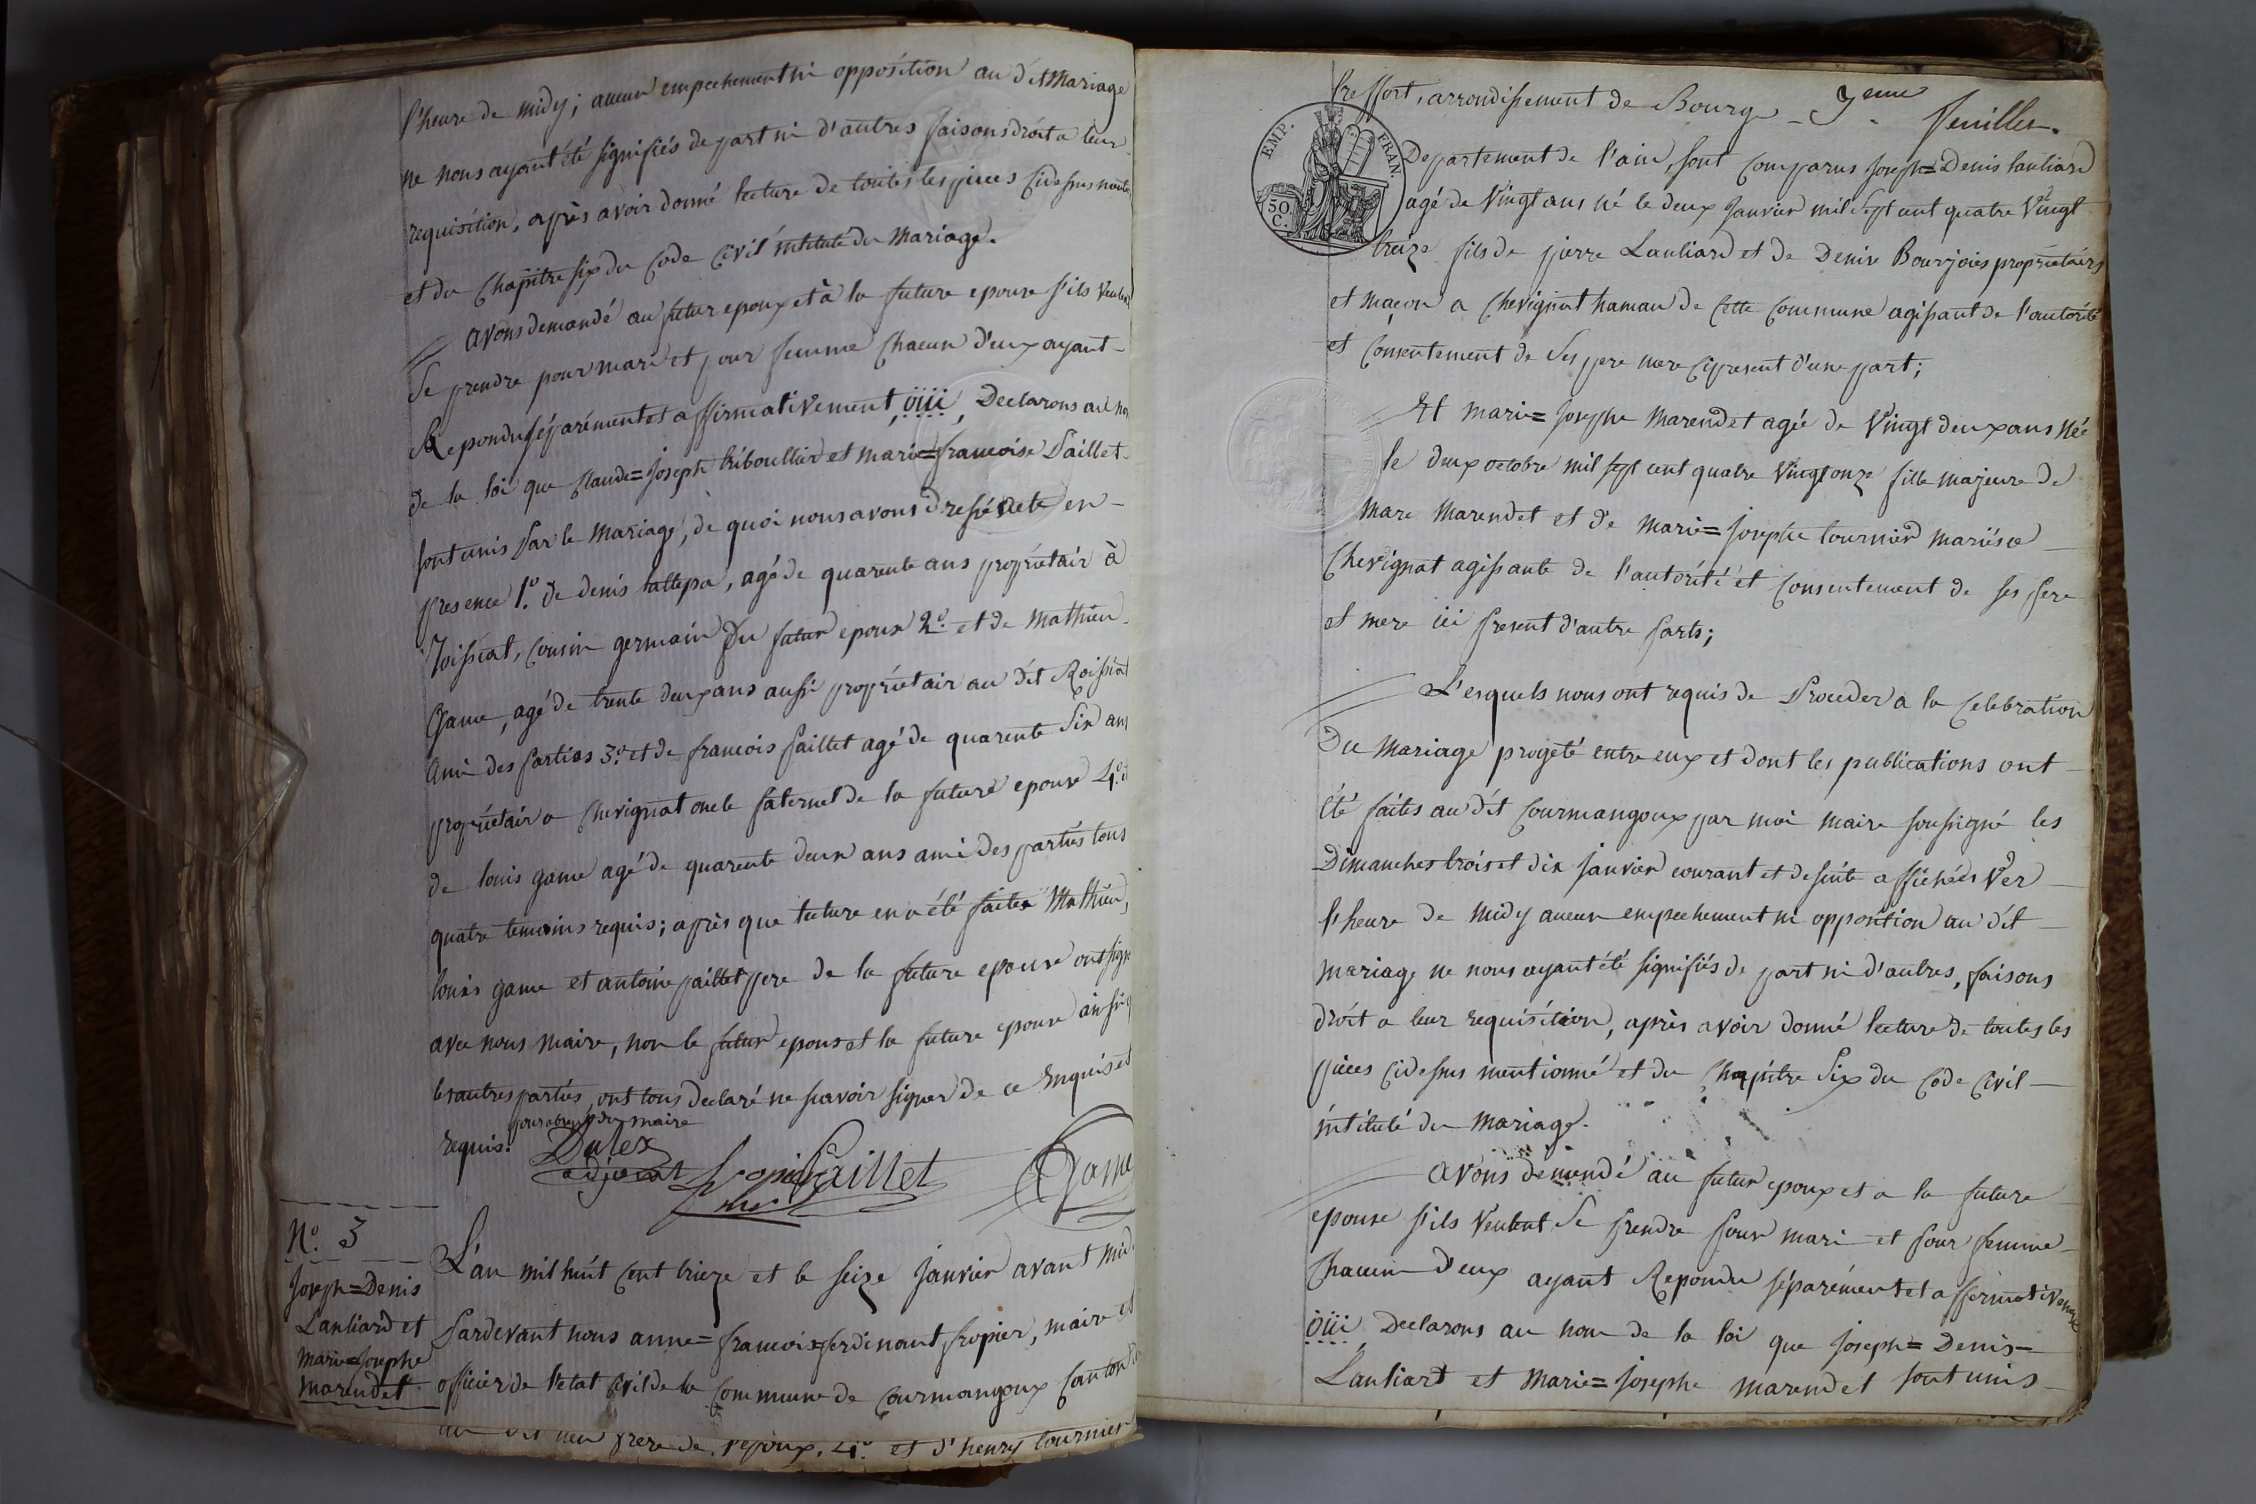 l'heure de midy; aucun empechement ni opposition au dit mariage
ne nous ayant été signifiés de part ni d'autres faisons droit a leur
requisition, après avoir donné lecture de toutes les pieces cidessus
et du Chapitre six du Code Civil intitulé du Mariage.
avons demandé au futur epoux et à la future epouse s'ils veulent
se prendre pour mari et pour femme chacun d'eux ayant
Repondu séparément et affirmativement, oüi, Declarons au nom
de la loi que Claude=Joseph triboullier et marie=francoise Paillet
sont unis par le mariage, de quoi nous avons dressé acte en
presence 1.º de denis tattepa, agé de quarente ans propriétair à
Roissiat, Cousin germain du futur epoux 2.º et de Mathieu
Game, agé de trente deux ans aussi propriétair au dit Roissiat
ami des parties 3.º et de francois paillet agé de quarente six ans
propriétair a Chevignat oncle paternel de la future epouse 4.º
de louis game agé de quarente deux ans ami des parties tous
quatre temoins requis; après que lecture en a été faite Mathieu,
louis game et antoine paillet pere de la future epouse ont signé
avec nous Maire, non le futur epoux et la future epouse
les autres parties, ont tous declaré ne scavoir signer de ce enquis et
pour absence du maire
requis.
Dulex
adjoint Paillet Game
N.º 3
Joseph=Denis
Lauliard et
Marie=Josephe
Marendet
L'an mil huit Cent trieze et le seize Janvier avant midi
Pardevant nous anne=francois=ferdinant fropier, maire et
officier de l'etat Civil de la Commune de Courmangoux Canton de
frere de l'epoux, 4.º et d'henry tournier
treffort, arrondissement de Bourg 7eme feuillet.
EMP. FRAN.
50 C.
Departement de l'ain, sont Comparus Joseph=Denis Lauliard
agé de vingt ans né le deux Janvier mil sept cent quatre vingt
treize fils de pierre Lauliard et de Denise Bourjois propriétaires
et maçon a Chevignat hamau de Cette Commune agissant de l'autorité
et Consentement de ses pere mere ci present d'une part;
Et marie=Josephe Marendet agée de vingt deux ans née
le deux octobre mil sept cent quatre vingt onze fille majeure de
Marc Marendet et de marie=Josephe tournier mariés a
Chevignat agissante de l'autorité et Consentement de ses pere
et mere ici present d'autre parts;
L'esquels nous ont requis de Proceder a la Celebration
Du Mariage progeté entre eux et dont les publications ont
été faites au dit Courmangoux par moi maire soussigné les
Dimanches trois et dix Janvier courant et desuite affichées ver
l'heure de midy aucun empechement ni opposition au dit
mariage ne nous ayant été signifiés de part ni d'autres, faisons
droit a leur requisition, après avoir donné lecture de toutes les
pieces cidessus mentionné et du Chapitre Six du Code Civil
intitulé du Mariage.
avons demandé au futur epoux et a la future
epouse s'ils veulent se prendre pour mari et pour femme
Chacun d'eux ayant Repondu séparément et affirmativement
oüi Declarons au nom de la loi que Joseph=Denis
Lauliart et Marie=Josephe marendet sont unis